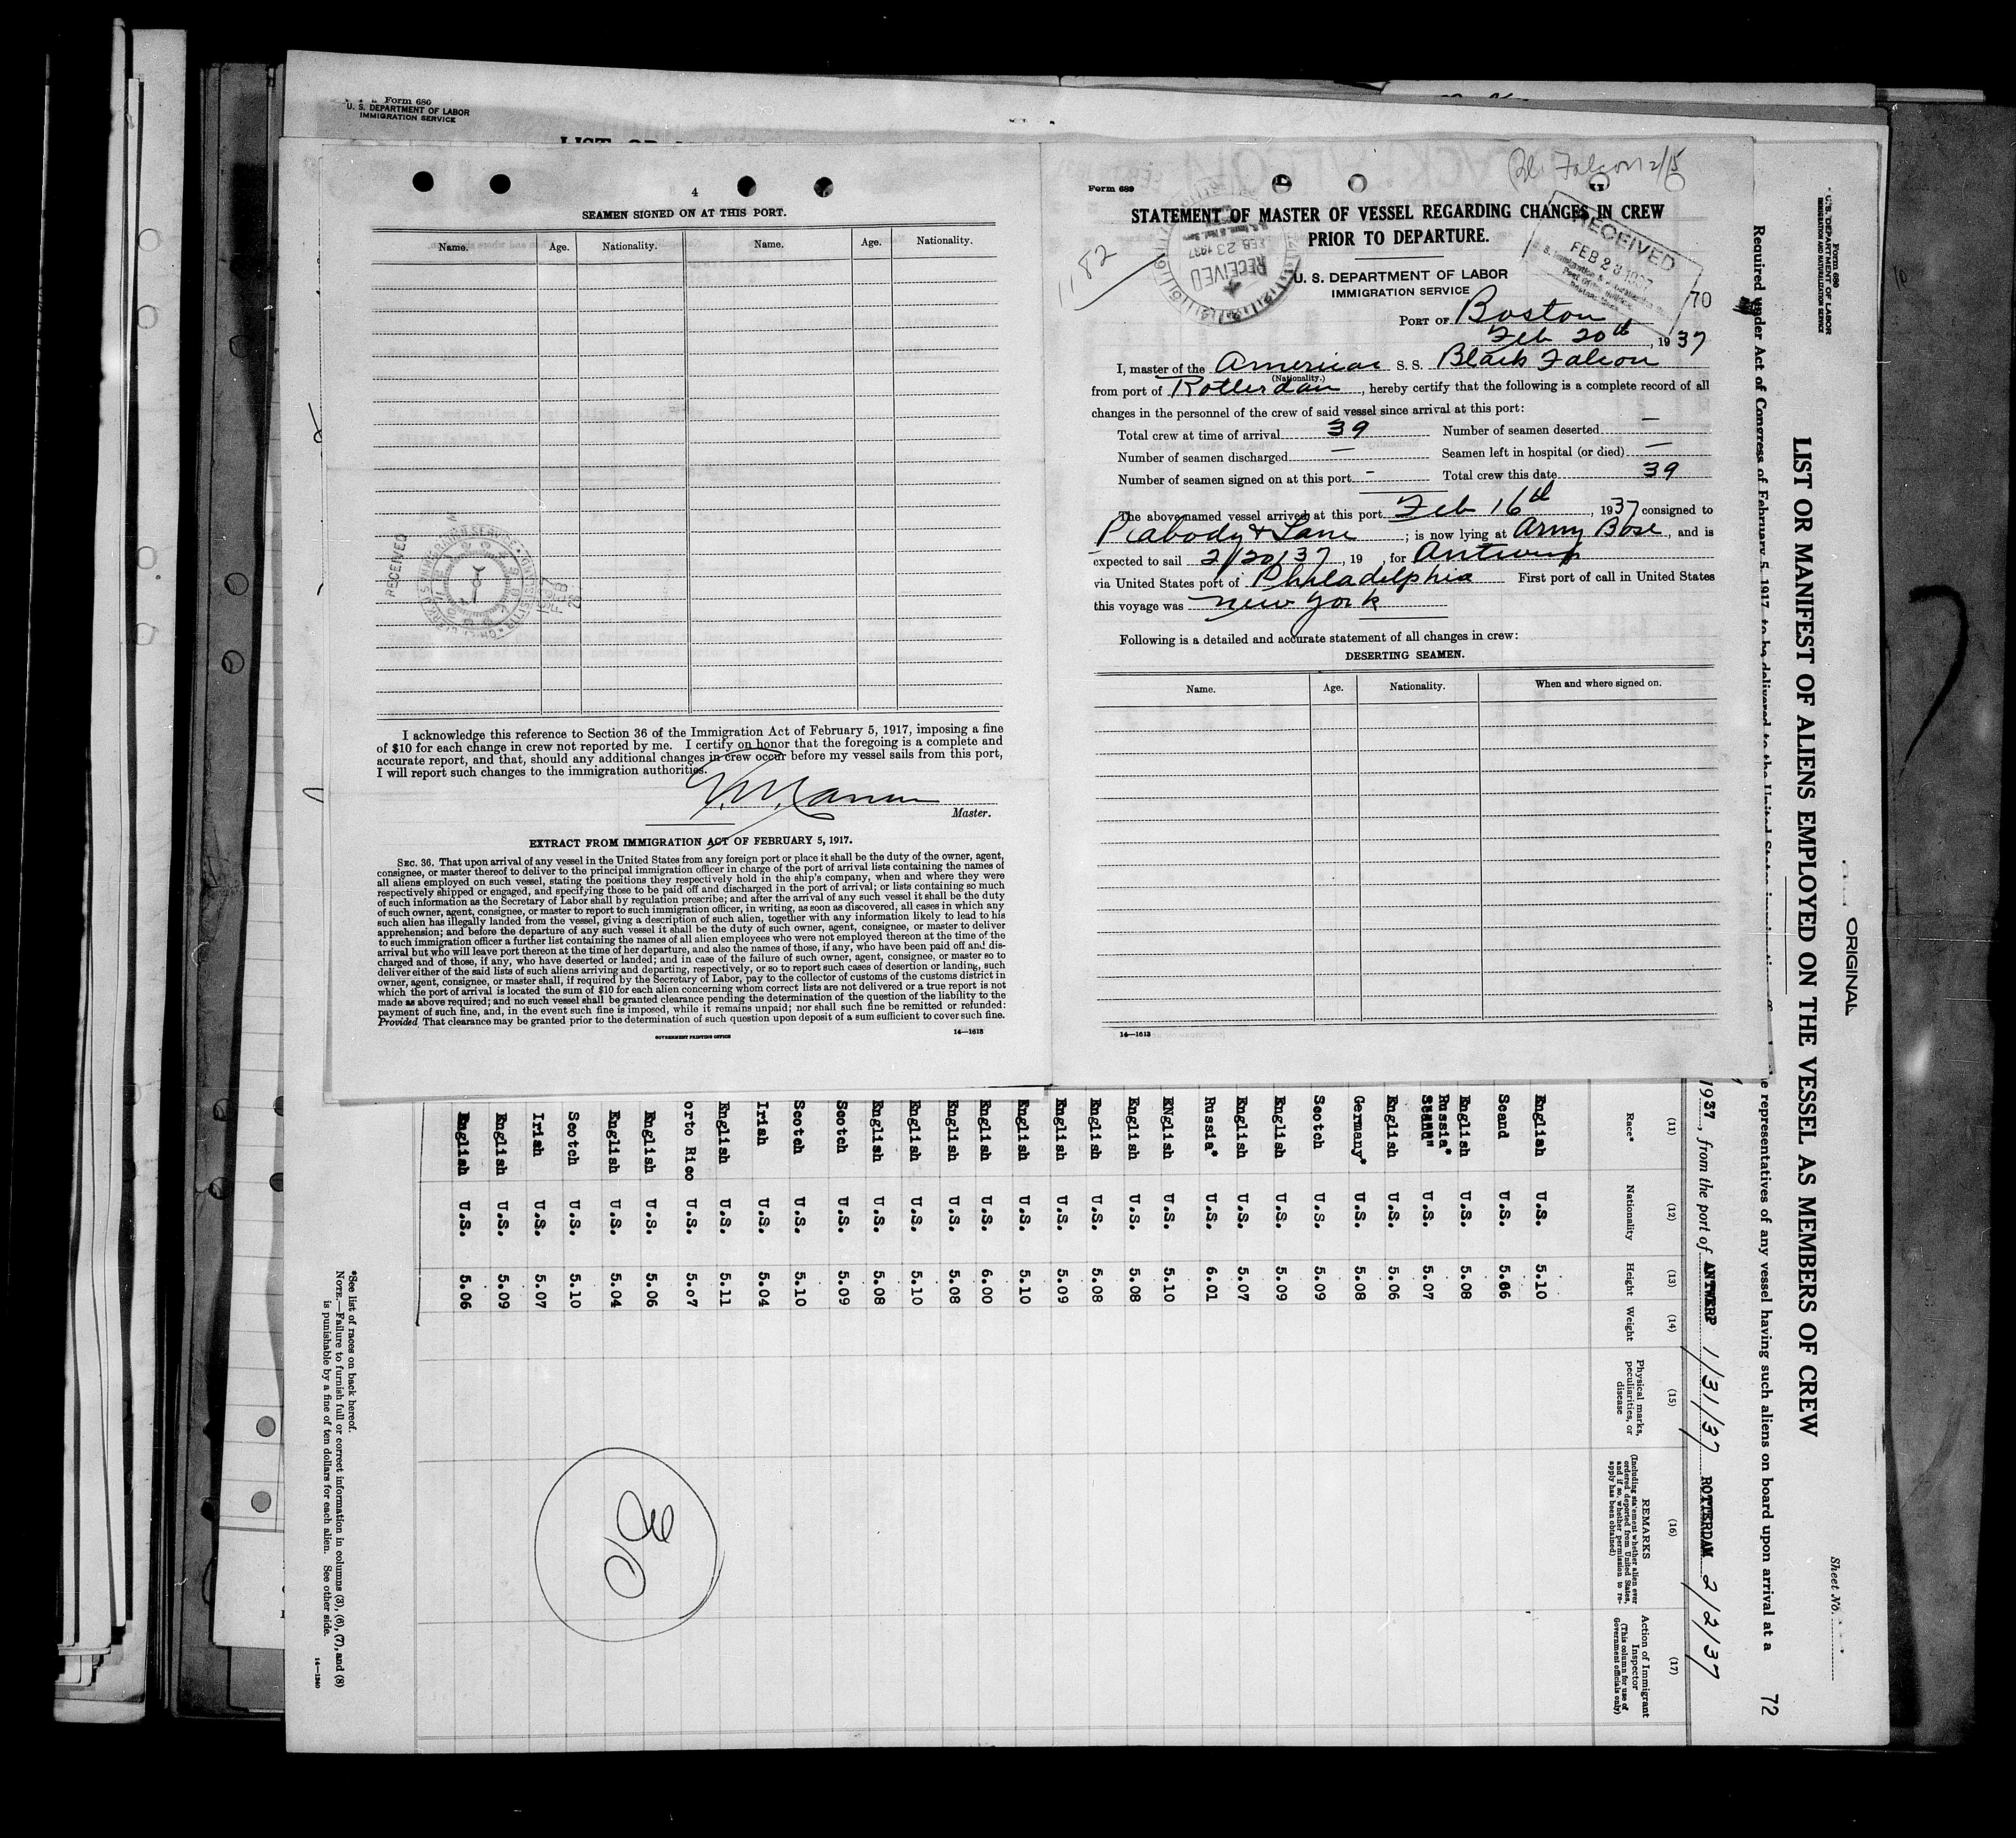 Form 680
U. S. DEPARTMENT OF LABOR
IMMIGRATION SERVICE
4
SEAMEN SIGNED ON AT THIS PORT.
Name. Age. Nationality. Name. Age. Nationality.
RECEIVED
I acknowledge this reference to Section 36 of the Immigration Act of February 5, 1917, imposing a fine
of $10 for each change in crew not reported by me. I certify on honor that the foregoing is a complete and
accurate report, and that, should any additional changes in crew occur before my vessel sails from this port,
I will report such changes to the immigration authorities.
Master.
EXTRACT FROM IMMIGRATION ACT OF FEBRUARY 5, 1917.
SEC. 36. That upon arrival of any vessel in the United States from any foreign port or place it shall be the duty of the owner, agent,
consignee, or master thereof to deliver to the principal immigration officer in charge of the port of arrival lists containing the names of
all aliens employed on such vessel, stating the positions they respectively hold in the ship's company, when and where they were
respectively shipped or engaged, and specifying those to be paid off and discharged in the port of arrival; or lists containing so much
of such information as the Secretary of Labor shall by regulation prescribe; and after the arrival of any such vessel it shall be the duty
of such owner, agent, consignee, or master to report to such immigration officer, in writing, as soon as discovered, all cases in which any
such alien has illegally landed from the vessel, giving a description of such alien, together with any information likely to lead to his
apprehension; and before the departure of any such vessel it shall be the duty of such owner, agent, consignee, or master to deliver
to such immigration officer a further list containing the names of all alien employees who were not employed thereon at the time of the
arrival but who will leave port thereon at the time of her departure, and also the names of those, if any, who have been paid off and dis-
charged and of those, if any, who have deserted or landed; and in case of the failure of such owner, agent, consignee, or master so to
deliver either of the said lists of such aliens arriving and departing, respectively, or so to report such cases of desertion or landing, such
owner, agent, consignee, or master shall, if required by the Secretary of Labor, pay to the collector of customs of the customs district in
which the port of arrival is located the sum of $10 for each alien concerning whom correct lists are not delivered or a true report is not
made as above required; and no such vessel shall be granted clearance pending the determination of the question of the liability to the
payment of such fine, and, in the event such fine is imposed, while it remains unpaid; nor shall such fine be remitted or refunded:
Provided That clearance may be granted prior to the determination of such question upon deposit of a sum sufficient to cover such fine.
GOVERNMENT PRINTING OFFICE 14—1613
Bl. Falcon 2/15
Form 689
STATEMENT OF MASTER OF VESSEL REGARDING CHANGES IN CREW
PRIOR TO DEPARTURE.
1182
RECEIVED
FEB 23 1937
RECEIVED
FEB 23 1937
U. S. DEPARTMENT OF LABOR
IMMIGRATION SERVICE
70
PORT OF Boston
Feb 20th, 1937
I, master of the American S. S. Black Falcon
(Nationality.)
from port of Rotterdam, hereby certify that the following is a complete record of all
changes in the personnel of the crew of said vessel since arrival at this port:
Total crew at time of arrival 39 Number of seamen deserted —
Number of seamen discharged — Seamen left in hospital (or died) —
Number of seamen signed on at this port - Total crew this date 39
The above-named vessel arrived at this port Feb 16th, 1937 consigned to
Peabody & Lane; is now lying at Army Base, and is
expected to sail 2/20/37, 19 , for Antwerp
via United States port of Philadelphia First port of call in United States
this voyage was New York
Following is a detailed and accurate statement of all changes in crew:
DESERTING SEAMEN.
Name. Age. Nationality. When and where signed on.
14—1613
Form 680
U. S. DEPARTMENT OF LABOR
IMMIGRATION AND NATURALIZATION SERVICE
ORIGINAL
Sheet No.
LIST OR MANIFEST OF ALIENS EMPLOYED ON THE VESSEL AS MEMBERS OF CREW
72
Required under Act of Congress of February 5, 1917, to be delivered to the United States
representatives of any vessel having such aliens on board upon arrival at a
1937, from the port of ANTWERP 1/31/37 ROTTERDAM 2/2/37
(11) (12) (13) (14) (15) (16) (17)
Race* Nationality Height Weight Physical marks, peculiarities, or disease REMARKS (Including statement whether alien ever ordered deported from United States, and if so, whether permission to re-apply has been obtained) Action of Immigrant Inspector (This column for use of Government officials only)
English U.S. 5.10
Scand U.S. 5.06
English U.S. 5.08
Russia* U.S. 5.07
English U.S. 5.06
Germany* U.S. 5.08
Scotch U.S. 5.09
English U.S. 5.09
English U.S. 5.07
Russia* U.S. 6.01
ENglish U.S. 5.10
English U.S. 5.08
English U.S. 5.08
English U.S. 5.09
English U.S. 5.10
English U.S. 6.00
English U.S. 5.08
English U.S. 5.10
English U.S. 5.08
Scotch U.S. 5.09
Scotch U.S. 5.10
Irish U.S. 5.04
English U.S. 5.11
orto Rico U.S. 5.07
English U.S. 5.06
English U.S. 5.04
Scotch U.S. 5.10
Irish U.S. 5.07
English U.S. 5.09
English U.S. 5.06
*See list of races on back hereof.
NOTE.—Failure to furnish full or correct information in columns (3), (6), (7), and (8)
is punishable by a fine of ten dollars for each alien. See other side.
14—1240